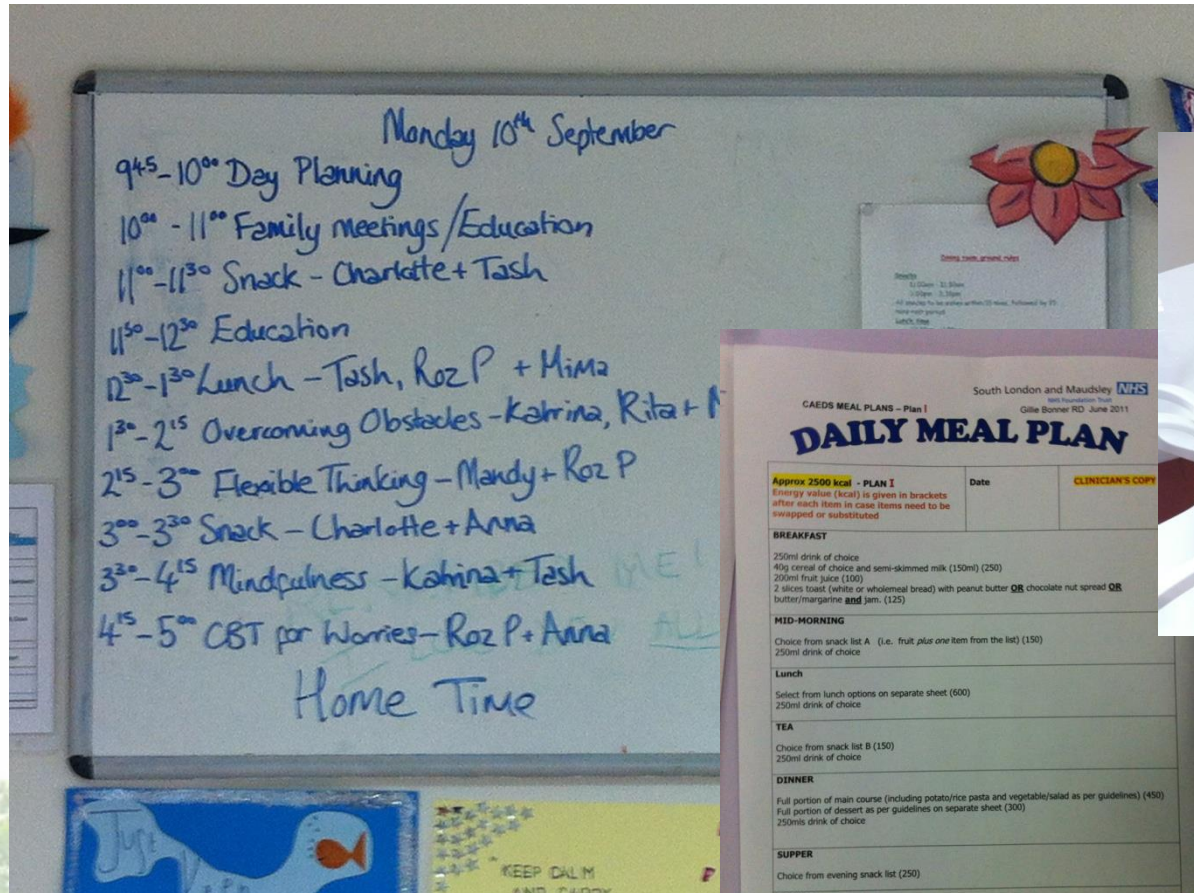 Monday 10th September
9⁴⁵-10⁰⁰ Day Planning
10⁰⁰ - 11⁰⁰ Family meetings/Education
11⁰⁰-11³⁰ Snack - Charlotte + Tash
11³⁰-12³⁰ Education
12³⁰-1³⁰ Lunch - Tash, Roz P + Mima
1³⁰-2¹⁵ Overcoming Obstacles - Katrina, Rita +
2¹⁵-3⁰⁰ Flexible Thinking - Mandy + Roz P
3⁰⁰-3³⁰ Snack - Charlotte + Anna
3³⁰-4¹⁵ Mindfulness - Katrina + Tash
4¹⁵-5⁰⁰ CBT for Worries - Roz P + Anna
Home Time
ME!
ALL
Dining room ground rules
Snacks
Lunch time
KEEP CALM
AND CARRY
South London and Maudsley NHS
NHS Foundation Trust
CAEDS MEAL PLANS – Plan I
Gillie Bonner RD June 2011
DAILY MEAL PLAN
Approx 2500 kcal - PLAN I
Energy value (kcal) is given in brackets
after each item in case items need to be
swapped or substituted
Date
CLINICIAN'S COPY
BREAKFAST
250ml drink of choice
40g cereal of choice and semi-skimmed milk (150ml) (250)
200ml fruit juice (100)
2 slices toast (white or wholemeal bread) with peanut butter OR chocolate nut spread OR
butter/margarine and jam. (125)
MID-MORNING
Choice from snack list A (i.e. fruit plus one item from the list) (150)
250ml drink of choice
Lunch
Select from lunch options on separate sheet (600)
250ml drink of choice
TEA
Choice from snack list B (150)
250ml drink of choice
DINNER
Full portion of main course (including potato/rice pasta and vegetable/salad as per guidelines) (450)
Full portion of dessert as per guidelines on separate sheet (300)
250mls drink of choice
SUPPER
Choice from evening snack list (250)